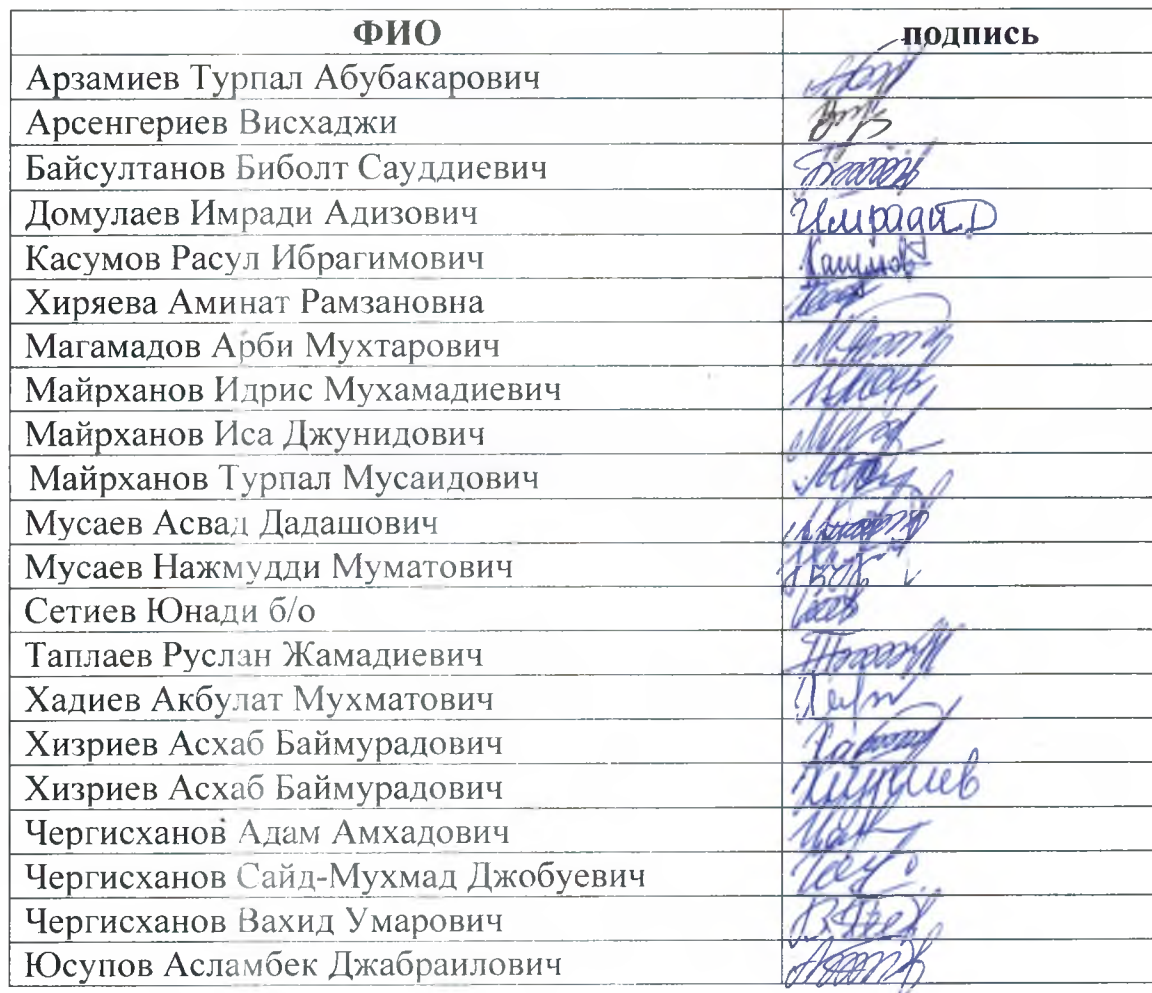 ФИО подпись
Арзамиев Турпал Абубакарович
Арсенгериев Висхаджи
Байсултанов Биболт Сауддиевич
Домулаев Имради Адизович Имради Д
Касумов Расул Ибрагимович
Хиряева Аминат Рамзановна
Магамадов Арби Мухтарович
Майрханов Идрис Мухамадиевич
Майрханов Иса Джунидович
Майрханов Турпал Мусаидович
Мусаев Асвад Дадашович
Мусаев Нажмудди Муматович
Сетиев Юнади б/о
Таплаев Руслан Жамадиевич
Хадиев Акбулат Мухматович
Хизриев Асхаб Баймурадович
Хизриев Асхаб Баймурадович
Чергисханов Адам Амхадович
Чергисханов Сайд-Мухмад Джобуевич
Чергисханов Вахид Умарович
Юсупов Асламбек Джабраилович